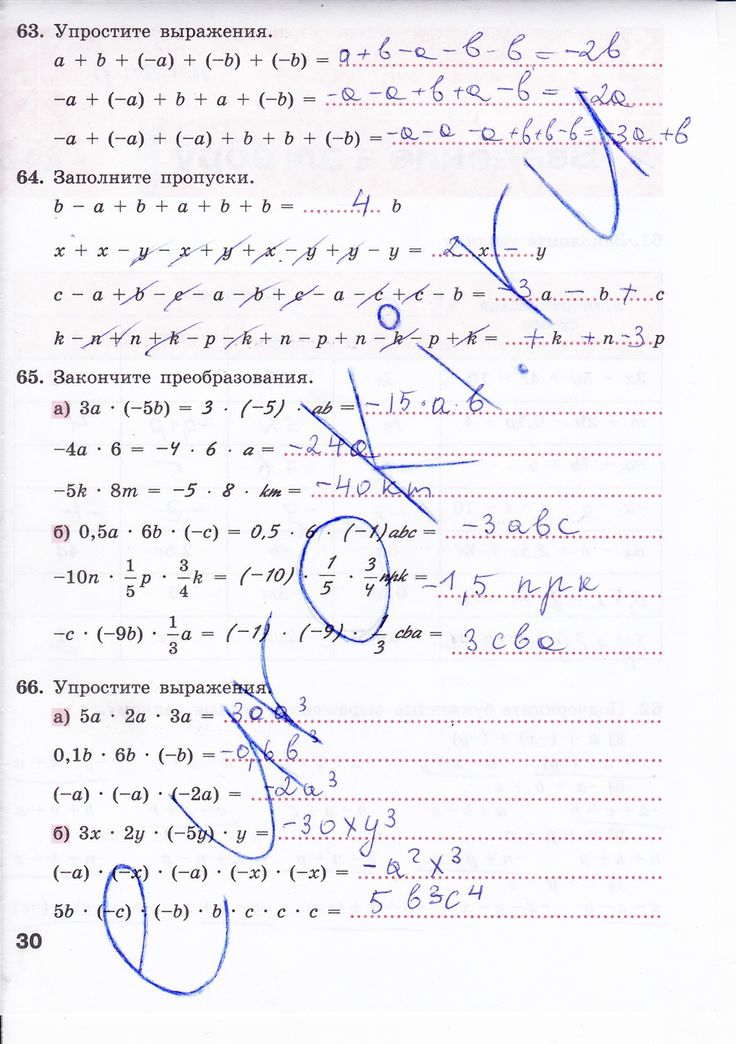 63. Упростите выражения.
a + b + (–a) + (–b) + (–b) = a + b – a – b – b = –2b
–a + (–a) + b + a + (–b) = –a – a + b + a – b = –2a
–a + (–a) + (–a) + b + b + (–b) = –a – a – a + b + b – b = –3a + b
64. Заполните пропуски.
b – a + b + a + b + b = 4 b
x + x – y – x + y + x – y + y – y = 2 x – y
c – a + b – c – a – b + c – a – c + c – b = –3 a – b + c
k – n + n + k – p – k + n – p + n – k – p + k = + k + n –3 p
65. Закончите преобразования.
а) 3a · (–5b) = 3 · (–5) · ab = –15·a·b
–4a · 6 = –4 · 6 · a = –24a
–5k · 8m = –5 · 8 · km = –40km
б) 0,5a · 6b · (–c) = 0,5 · 6 · (–1)abc = –3abc
–10n · 1/5 p · 3/4 k = (–10) · 1/5 · 3/4 npk = –1,5 npk
–c · (–9b) · 1/3 a = (–1) · (–9) · 1/3 cba = 3cba
66. Упростите выражения.
а) 5a · 2a · 3a = 30a³
0,1b · 6b · (–b) = –0,6b³
(–a) · (–a) · (–2a) = –2a³
б) 3x · 2y · (–5y) · y = –30xy³
(–a) · (–x) · (–a) · (–x) · (–x) = –a²x³
5b · (–c) · (–b) · b · c · c · c = 5b³c⁴
30